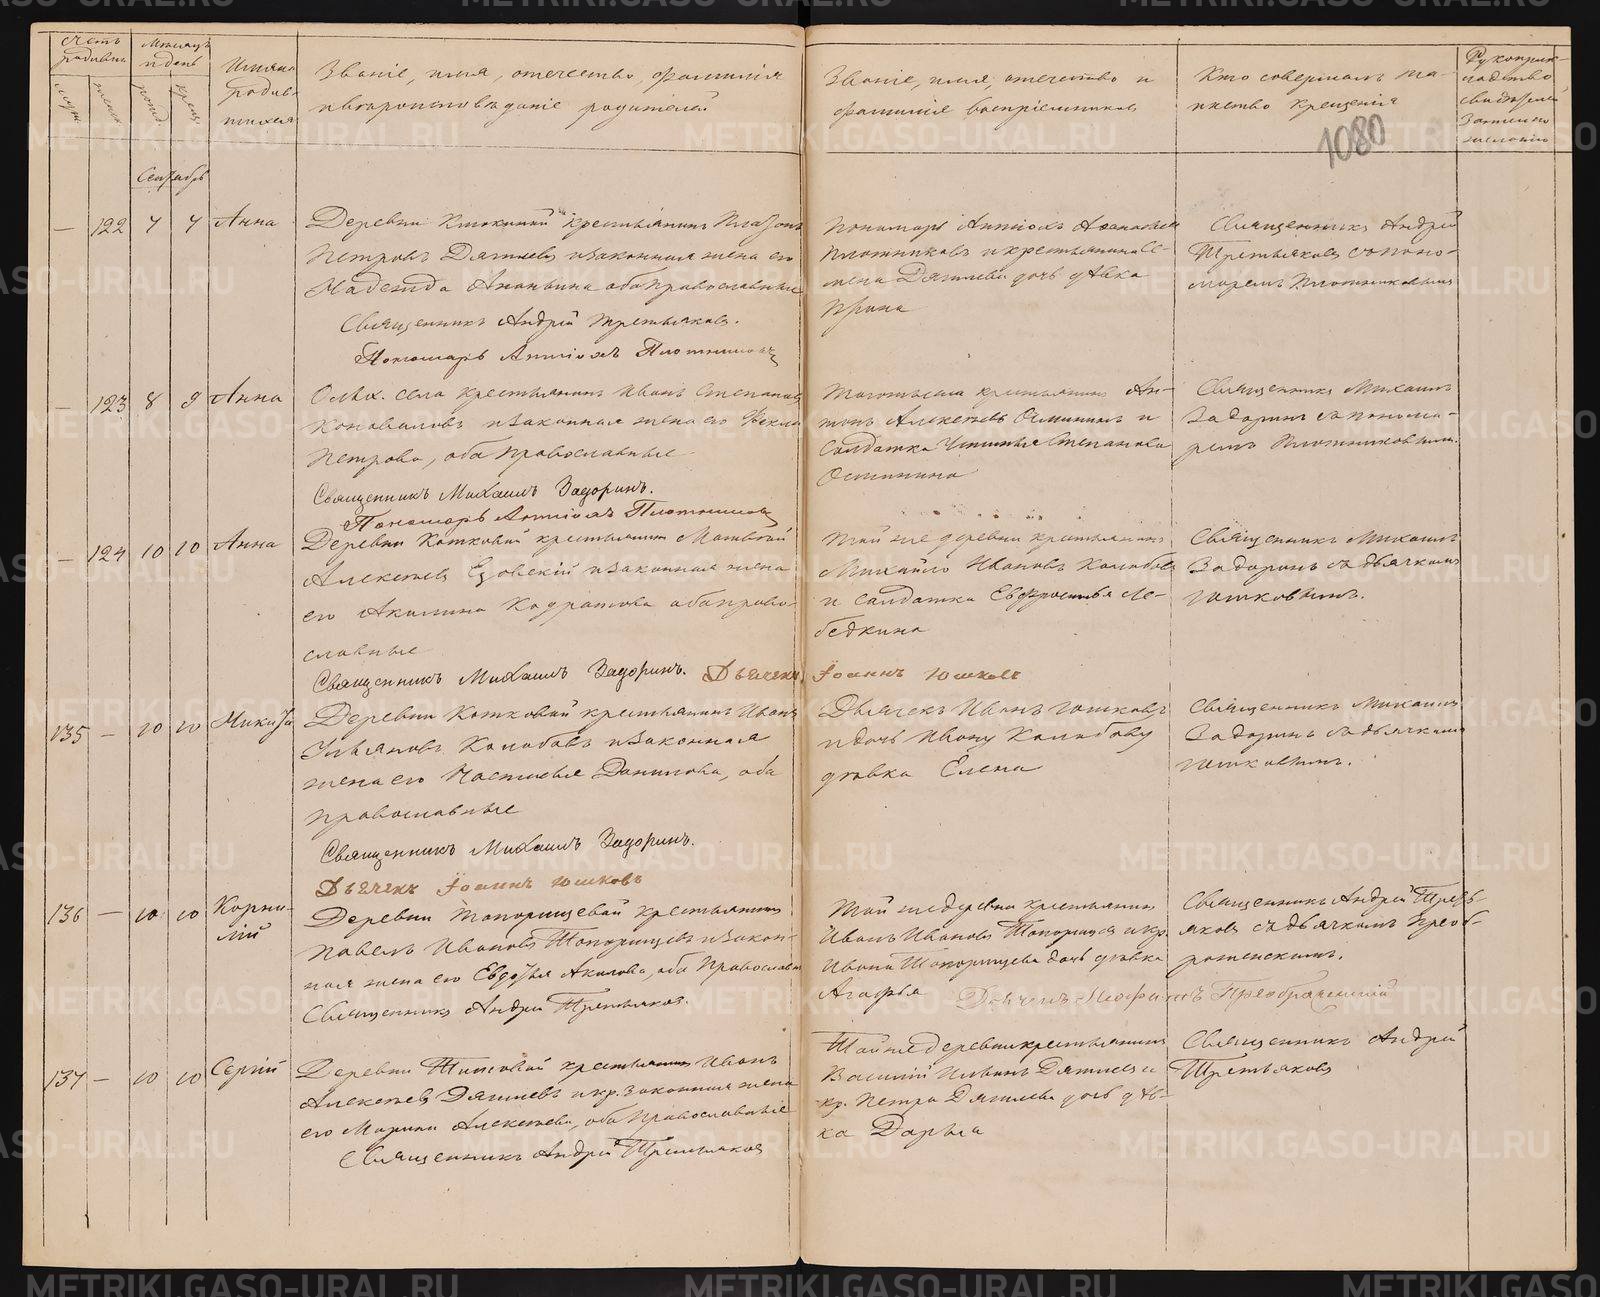 Счетъ родивш.
Мѣсяцъ и день
Имена родив-
шихся
Званіе, имя, отчество, фамилія
и вѣроисповѣданіе родителей
Званіе, имя, отчество и
фамилія воспріемниковъ
Кто совершалъ та-
инство крещенія
Рукоприк-
ладство
свидѣтелей
записи по
желанію
1080
Сентябрь
— 122 7 7 Анна
Деревни крестьянинъ Платонъ
Петровъ Дягилевъ и законная жена его
Надежда Ананьина оба православные
Священникъ Андрій Третьяковъ.
Пономарь Антіохъ Плотниковъ
Пономарь Антіохъ
Плотниковъ и крестьянина Се-
мена Дягилева дочь дѣвка
Ирина
Священникъ Андрій
Третьяковъ съ поно-
маремъ Плотниковымъ
— 123 8 9 Анна
села крестьянинъ Иванъ Степановъ
Коноваловъ и законная жена его Фекла
Петрова, оба православные
Священникъ Михаилъ Задоринъ.
Пономарь Антіохъ Плотниковъ
крестьянинъ Ан-
тонъ Алексѣевъ Осминиnъ и
Солдатка Степанова
Осминина
Священникъ Михаилъ
Задоринъ съ понома-
ремъ Плотниковымъ.
— 124 10 10 Анна
Деревни Котковой крестьянинъ Матвѣй
Алексѣевъ и законная жена
его Акилина Кодратова оба право-
славные
Священникъ Михаилъ Задоринъ. Дьячекъ Іоаннъ Юшковъ
Той же деревни крестьянинъ
Михайло Ивановъ Колобовъ
и солдатка Евфросинья Ле-
бедкина
Священникъ Михаилъ
Задоринъ съ дьячкомъ
Юшковымъ.
135 — 10 10 Никита
Деревни Котковой крестьянинъ Иванъ
Ульяновъ Колобовъ и законная
жена его Настасья Данилова, оба
православные
Священникъ Михаилъ Задоринъ.
Дьячекъ Іоаннъ Юшковъ
Дьячекъ Иванъ Юшковъ
и дочь Ивана Колобова
дѣвка Елена
Священникъ Михаилъ
Задоринъ съ дьячкомъ
Юшковымъ.
136 — 10 10 Корни-
лій
Деревни Топорищевой крестьянинъ
Павелъ Ивановъ Топорищевъ и закон-
ная жена его Евдокія Акилова, оба Православные
Священникъ Андрій Третьяковъ.
Той же деревни крестьянинъ
Иванъ Ивановъ Топорищевъ и кр.
Ивана Топорищева дочь дѣвка
Агафья
Дьячекъ Преображенскій
Священникъ Андрій Треть-
яковъ съ дьячкомъ Преоб-
раженскимъ.
137 — 10 10 Сергій
Деревни крестьянинъ Иванъ
Алексѣевъ Дягилевъ и кр. законная жена
его Марина Алексѣева, оба Православные
Священникъ Андрій Третьяковъ
Той же деревни крестьянинъ
Василій Дягилевъ и
кр. Петра Дягилева дочь дѣв-
ка Дарья
Священникъ Андрій
Третьяковъ
METRIKI.GASO-URAL.RU